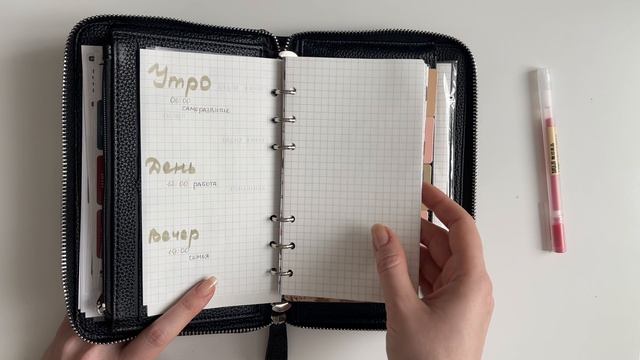 Утро
06:00
саморазвитие
День
12:00 работа
Вечер
19:00
семья